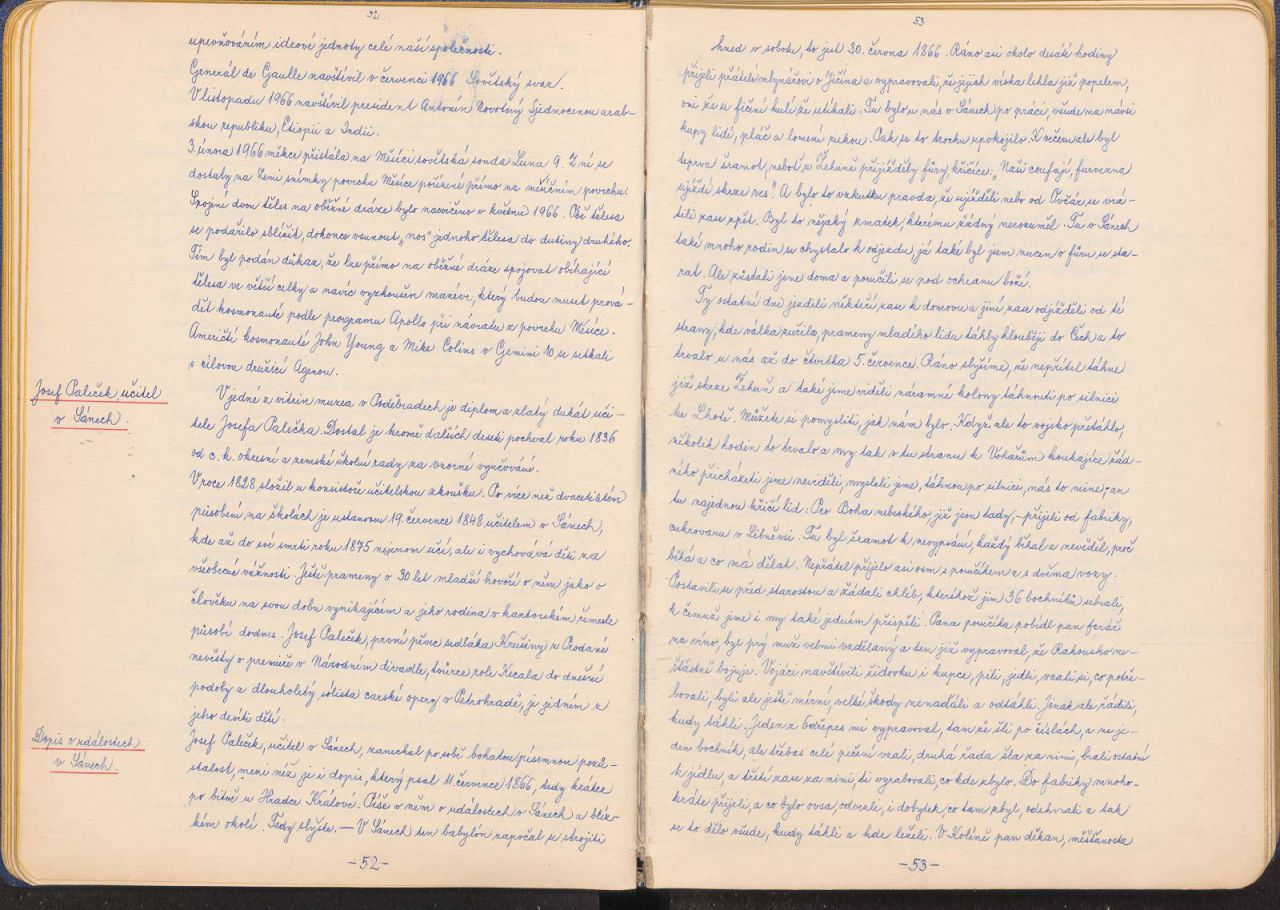 52
upevňováním ideové jednoty celé naší společnosti.
Generál de Gaulle navštívil v červenci 1966 Sovětský svaz.
V listopadu 1966 navštívil president Antonín Novotný Sjednocenou arab-
skou republiku, Etiopii a Indii.
3. února 1966 měkce přistála na Měsíci sovětská sonda Luna 9. Z ní se
dostaly na Zemi snímky povrchu Měsíce pořízené přímo na měsíčním povrchu.
Spojení dvou těles na oběžné dráze bylo nacvičeno v květnu 1966. Obě tělesa
se podařilo sblížit, dokonce vsunout „nos" jednoho tělesa do dutiny druhého.
Tím byl podán důkaz, že lze přímo na oběžné dráze spojovat obíhající
tělesa ve větší celky a navíc vyzkoušen manévr, který budou muset prová-
dět kosmonauté podle programu Apollo při návratu z povrchu Měsíce.
Američtí kosmonauté John Young a Mike Colins v Gemini 10 se setkali
s cílovou družicí Agenou.
Josef Paleček učitel
v Sánech.
V jedné z vitrin muzea v Poděbradech je diplom a zlatý dukát uči-
tele Josefa Palečka. Dostal je kromě dalších deseti pochval roku 1836
od c. k. okresní a zemské školní rady za vzorné vyučování.
V roce 1828 složil u konsistoře učitelskou zkoušku. Po více než dvacetiletém
působení na školách je ustanoven 19. července 1848 učitelem v Sánech,
kde až do své smrti roku 1875 nejenom učí, ale i vychovává děti za
všeobecné vážnosti. Ještě prameny o 30 let mladší hovoří o něm jako o
člověku na svou dobu vynikajícím a jeho rodina v kantorském řemesle
působí dodnes. Josef Paleček, první pěvec sedláka Krušiny z Prodané
nevěsty o premiéře v Národním divadle, tvůrce role Kecala do dnešní
podoby a dlouholetý sólista carské opery v Petrohradě, je jedním z
jeho devíti dětí.
Dopis o událostech
v Sánech.
Josef Paleček, učitel v Sánech, zanechal po sobě bohatou písemnou pozů-
stalost, mezi níž je i dopis, který psal 11. července 1866, tedy krátce
po bitvě u Hradce Králové. Píše v něm o událostech v Sánech a blíz-
kém okolí. Tedy slyšte. — V Sánech ten babylón započal se strojiti
-52-
53
hned v sobotu, to jest 30. června 1866. Ráno asi okolo desáté hodiny
přijeli přátelé mlynářovi o Jičína a vypravovali, že jejich víska lehla již popelem,
oni že se fičení kulí že utíkali. Tu bylo u nás v Sánech po práci, všude na návsi
kupy lidí, pláč a lomení rukou. Pak se to trochu upokojilo. K večeru ale byl
teprva šramot, neboť z Žehuně přijížděly fůry, křičíce: „Naši coufají, furverna
ujíždí skrze ves". A bylo to vskutku pravda, že ujížděli nebo od Ovčár se vrá-
tili zase zpět. Byl to nějaký zmatek, kterému žádný nerozuměl. Tu v Sánech
také mnoho rodin se chystalo k odjezdu, já také byl jsem nucen o fůru se sta-
rat. Ale zůstali jsme doma a poručili se pod ochranu boží.
Ty ostatní dni jezdili někteří zase k domovu a jiní zase odjížděli od té
strany, kde válka zuřila, prameny mladého lidu táhly hlouběji do Čech a to
trvalo u nás až do čtvrtka 5. července. Ráno slyšíme, že nepřítel táhne
již skrze Žehuň a také jsme viděli náramné kolony táhnouti po silnici
ke Lhotě. Můžete si pomysliti, jak nám bylo. Když ale to vojsko přetáhlo,
několik hodin to trvalo a my tak v tu stranu k Vohařům koukajíce žád-
ného přicházeti jsme neviděli, mysleli jsme, táhnou po silnici, nás to mine; an
tu najednou křičí lid: Pro Boha nebeského, již jsou tady, - přijeli od fabriky,
cukrovaru v Libněvsi. Tu byl šramot k nevypsání, každý běhal a nevěděl, proč
běhá a co má dělat. Nepřátel přijelo asi osm s poručíkem a s dvěma vozy.
Postavili se před starostou a žádali chléb, kteréhož jim 36 bochníků sebrali,
k čemuž jsme i my také jedním přispěli. Pana poručíka pobídl pan farář
na víno, byl prý muž velmi vzdělaný a ten již vypravoval, že Rakousko ne-
šťastně bojuje. Vojáci navštívili židovku i kupce, pili, jidli, vzali si, co potře-
bovali, byli ale ještě mírní, velké škody nenadáli a odtáhli. Jinak ale řádili,
kudy táhli. Jeden z Odřepes mi vypravoval, tam že šli po číslách, a ne je-
den bochník, ale třebas celé pečení vzali, druhá řada šla za nimi, brali ostatní
k jídlu, a třetí zase za nimi, ti vyrabovali, co kde zbylo. Do fabriky mnoho-
kráte přijeli, a co bylo ovsa, odvezli, i dobytek, co tam zbyl, odehnali a tak
se to dělo všude, kudy táhli a kde leželi. V Kolíně pan děkan, měšťanosta
-53-